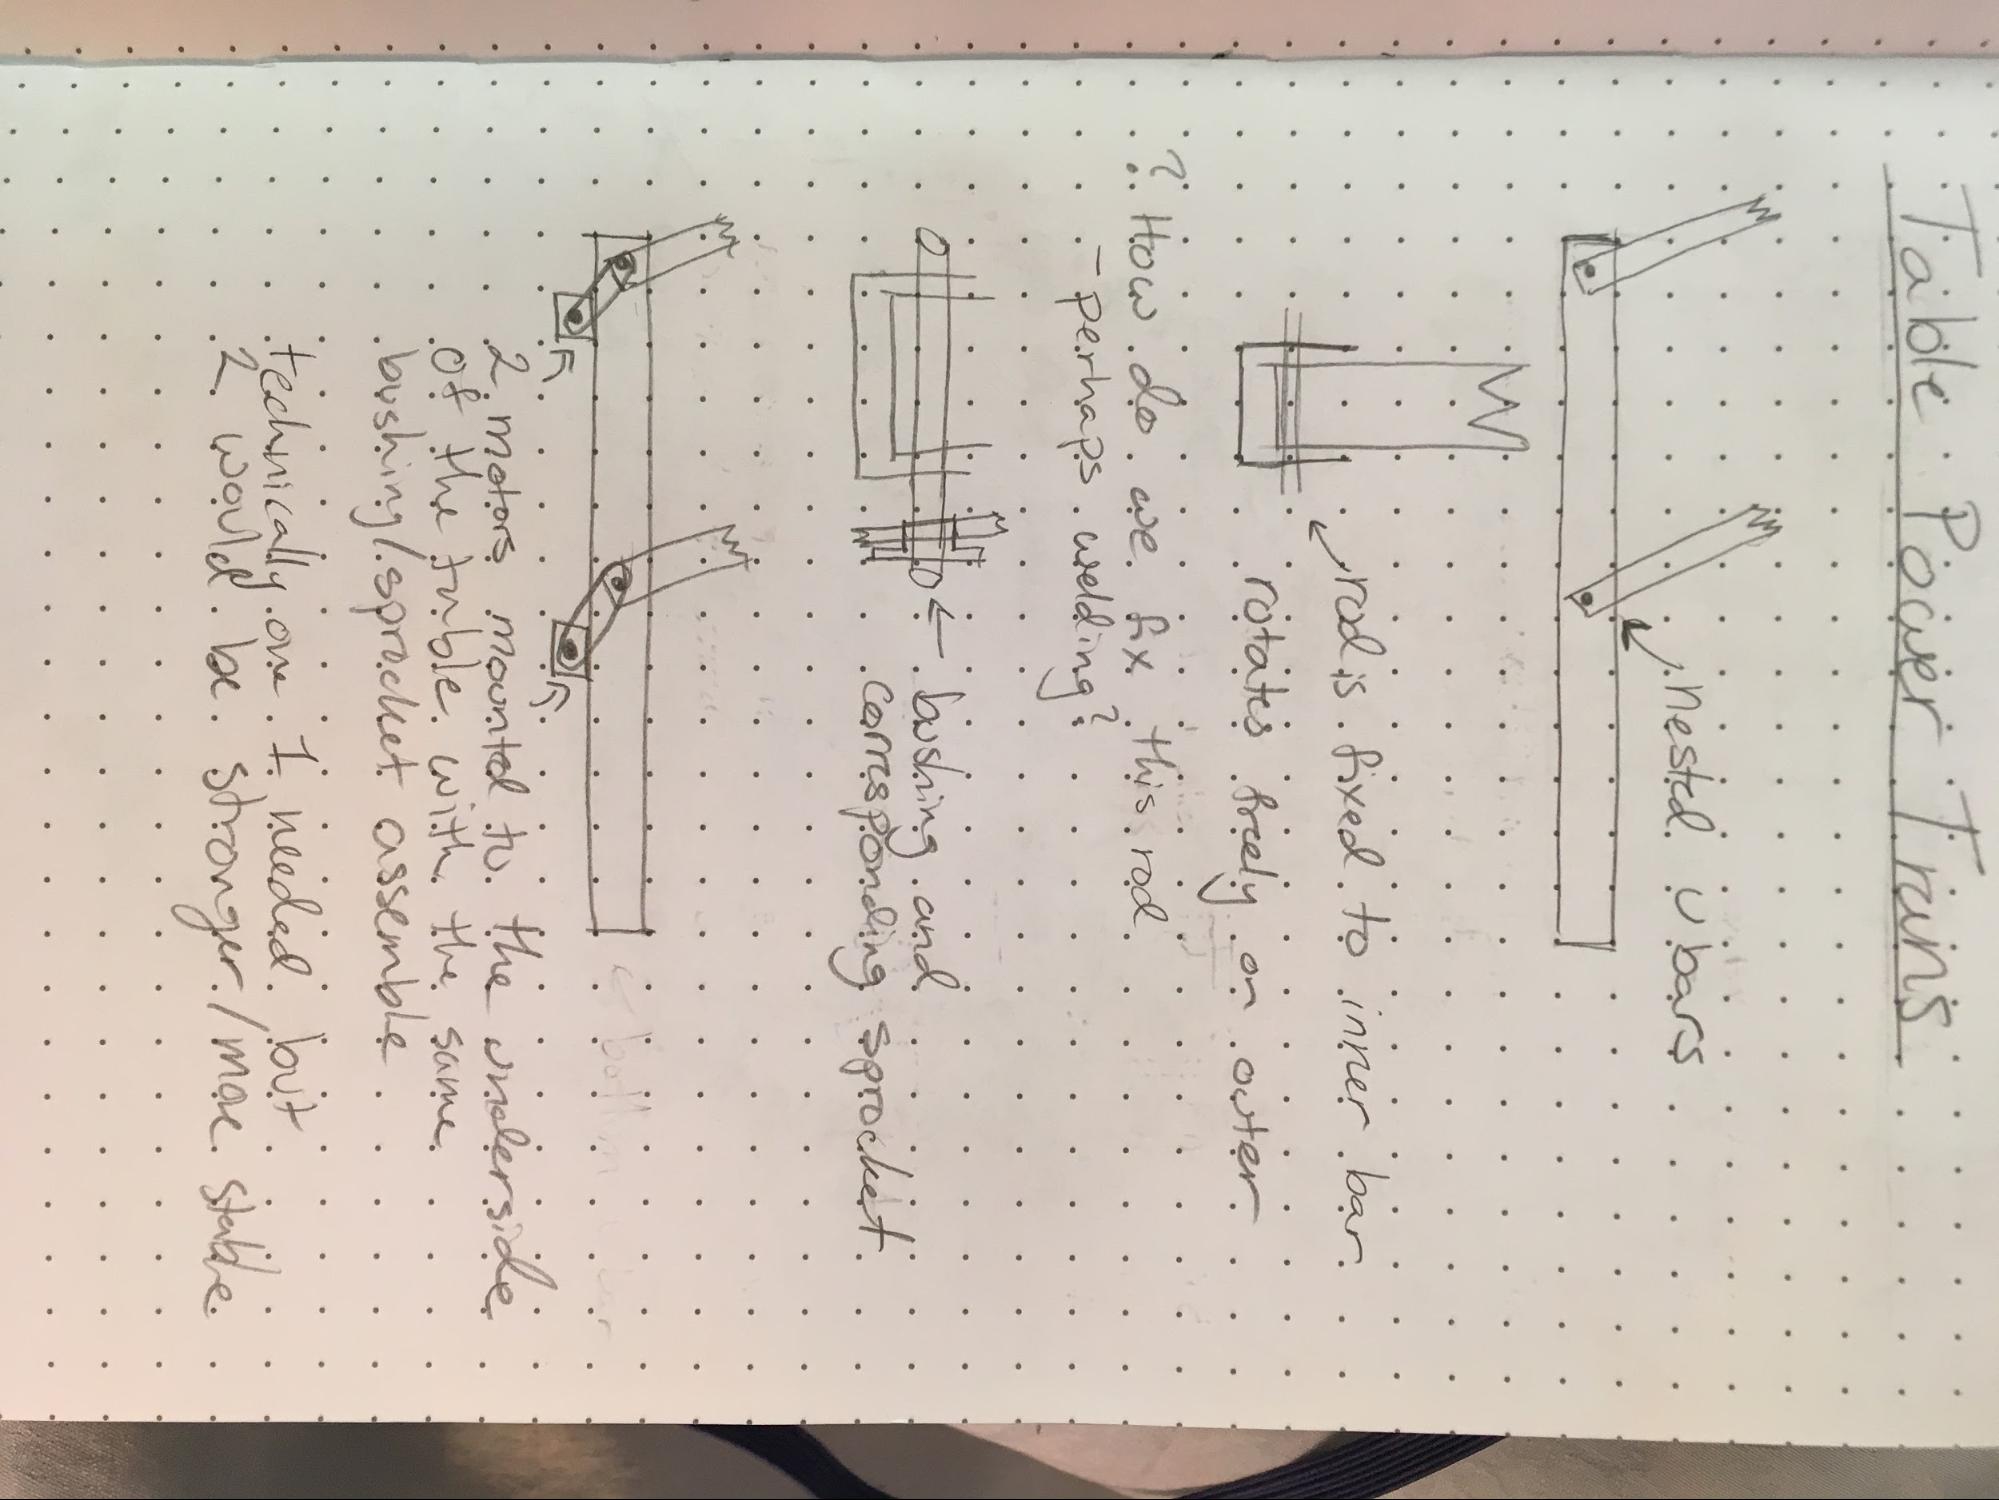 Table Power Trains
nested u bars
rod is fixed to inner bar
rotates freely on outer
? How do we fix this rod
- perhaps welding?
bushing and
corresponding sprocket
2 motors mounted to the underside
of the tuble with the same
bushing/sprocket assemble
technically one 1 needed but
2 would be stronger/more stable